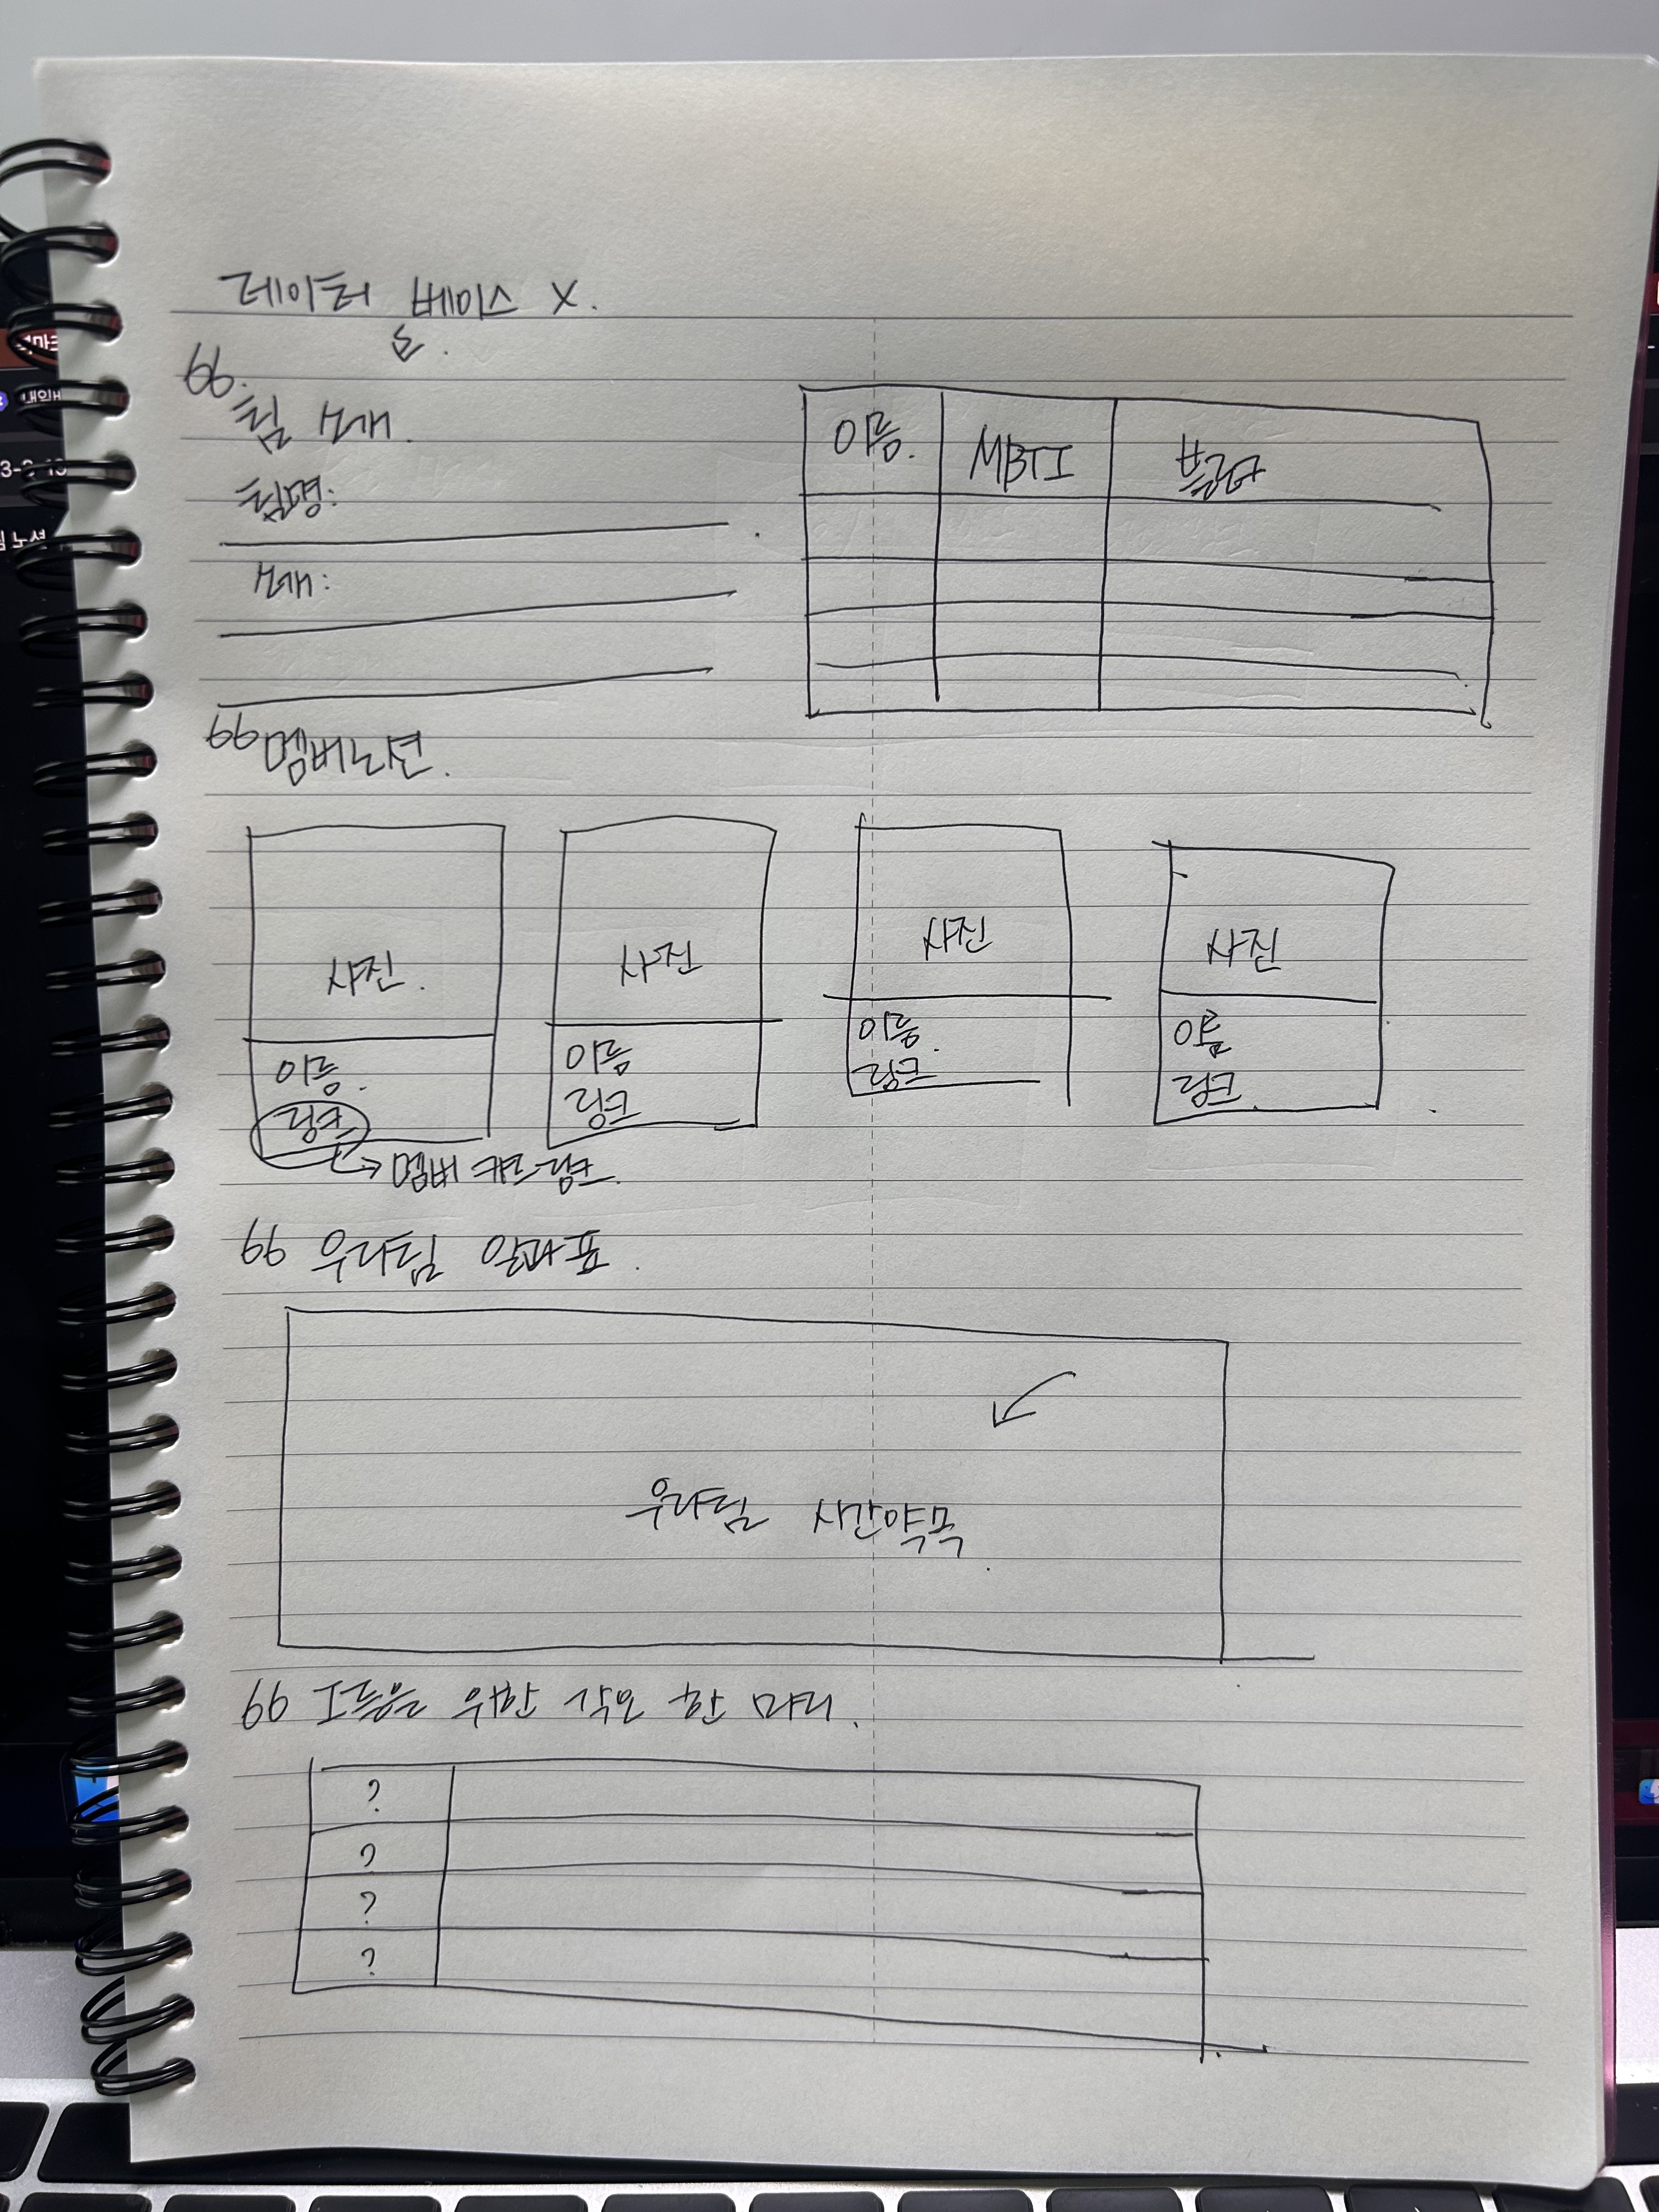 데이터 베이스 X.
팀 소개.
팀명:
소개:
이름. MBTI 블로그
멤버카드.
사진. 사진 사진 사진
이름. 이름 이름. 이름
링크 링크 링크 링크.
→ 멤버 카드 링크.
우리팀 일과표.
우리팀 시간약속
모두를 위한 각오 한 마디.
?
?
?
?